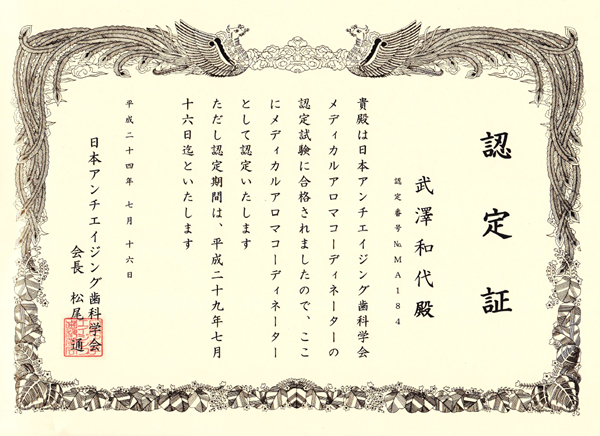 認定証
武澤和代殿
認定番号 №MA184
貴殿は日本アンチエイジング歯科学会
メディカルアロマコーディネーターの
認定試験に合格されましたので、ここ
にメディカルアロマコーディネーター
として認定いたします
ただし認定期間は、平成二十九年七月
十六日迄といたします
平成二十四年 七月 十六日
日本アンチエイジング歯科学会
会長 松尾 通